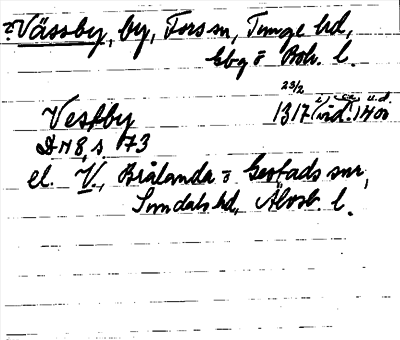 ?Vässby, by, Fors sn, Tunge hd,
Gbg o Boh. l.
23/2
Vestby 1317 (vid. 1400
DN 8, s. 73
el. V., Brålanda o Gestads snr,
Sundals hd, Älvsb. l.